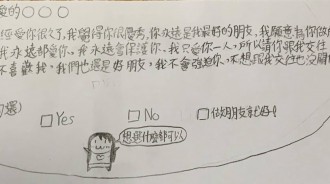 愛的○○○
經愛你很久了,我覺得你很優秀,你永遠是我最好的朋友,我願意為你做
我永遠都愛你,永遠會保護你,我只愛你一人,所以請你跟我交往
不喜歡我,我們也還是好朋友,我不會強迫你,不想跟我交往也沒關
選)
□Yes □No □做朋友就好
想選什麼都可以